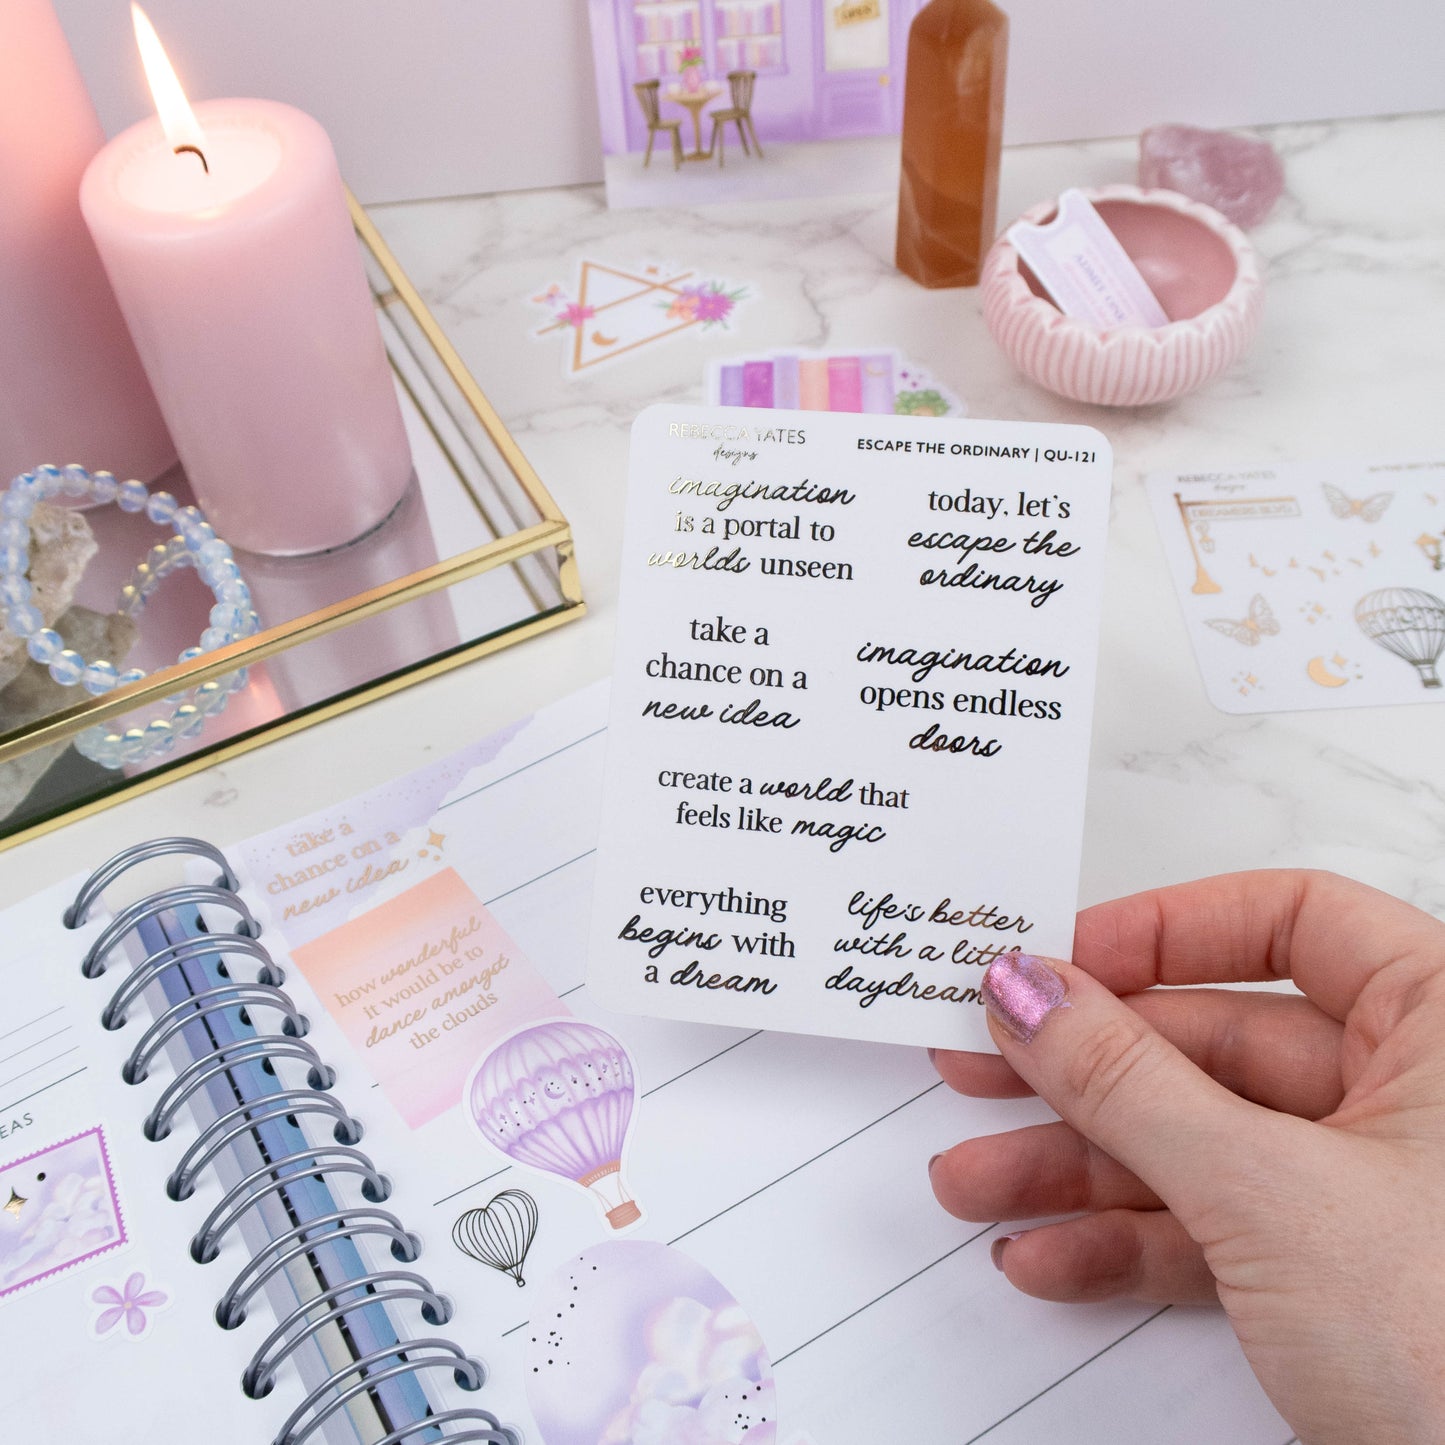 OPEN
REBECCA YATES
designs
ESCAPE THE ORDINARY | QU-121
imagination
is a portal to
worlds unseen
today, let's
escape the
ordinary
take a
chance on a
new idea
imagination
opens endless
doors
create a world that
feels like magic
everything
begins with
a dream
life's better
with a little
daydream
REBECCA YATES
designs
DREAMERS BLVD.
take a
chance on a
new idea
how wonderful
it would be to
dance amongst
the clouds
EAS